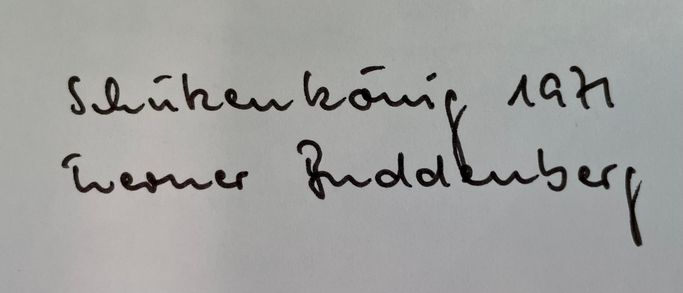 Schützenkönig 1971
Werner Buddenberg